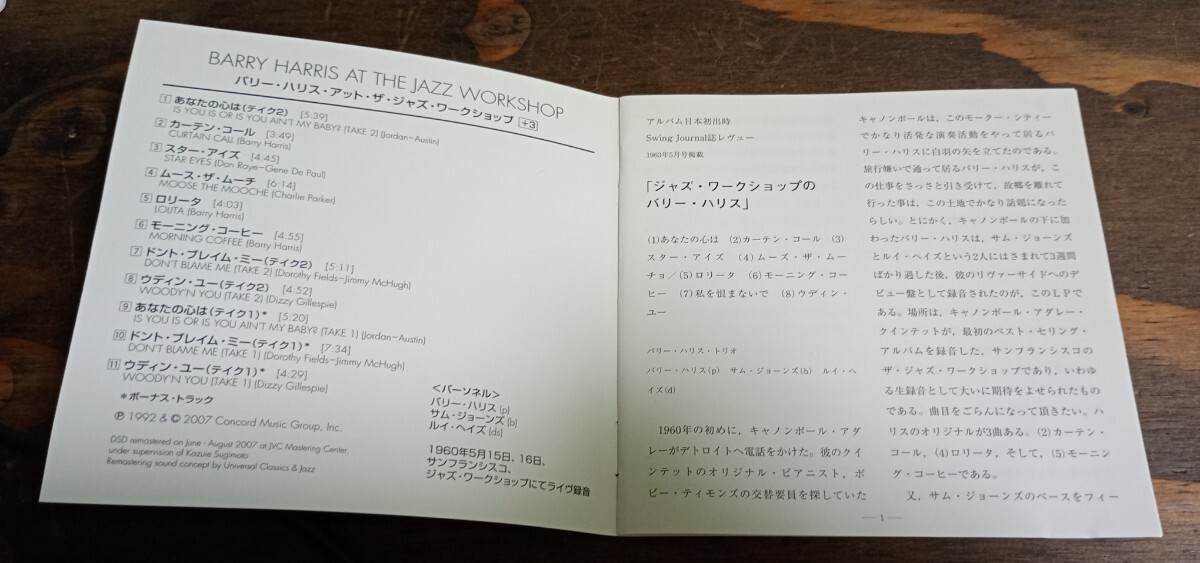 BARRY HARRIS AT THE JAZZ WORKSHOP
バリー・ハリス・アット・ザ・ジャズ・ワークショップ +3
1 あなたの心は（テイク2） [5:39]
IS YOU IS OR IS YOU AIN'T MY BABY? (TAKE 2) (Jordan–Austin)
2 カーテン・コール [3:49]
CURTAIN CALL (Barry Harris)
3 スター・アイズ [4:45]
STAR EYES (Don Raye–Gene De Paul)
4 ムース・ザ・ムーチ [6:14]
MOOSE THE MOOCHE (Charlie Parker)
5 ロリータ [4:03]
LOLITA (Barry Harris)
6 モーニング・コーヒー [4:55]
MORNING COFFEE (Barry Harris)
7 ドント・ブレイム・ミー（テイク2） [5:11]
DON'T BLAME ME (TAKE 2) (Dorothy Fields–Jimmy McHugh)
8 ウディン・ユー（テイク2） [4:52]
WOODY'N YOU (TAKE 2) (Dizzy Gillespie)
9 あなたの心は（テイク1）* [5:20]
IS YOU IS OR IS YOU AIN'T MY BABY? (TAKE 1) (Jordan–Austin)
10 ドント・ブレイム・ミー（テイク1）* [7:34]
DON'T BLAME ME (TAKE 1) (Dorothy Fields–Jimmy McHugh)
11 ウディン・ユー（テイク1）* [4:29]
WOODY'N YOU (TAKE 1) (Dizzy Gillespie)
*ボーナス・トラック
℗ 1992 & © 2007 Concord Music Group, Inc.
DSD remastered on June - August 2007 at JVC Mastering Center,
under supervision of Kazuie Sugimoto
Remastering sound concept by Universal Classics & Jazz
<パーソネル>
バリー・ハリス (p)
サム・ジョーンズ (b)
ルイ・ヘイズ (ds)
1960年5月15日、16日、
サンフランシスコ、
ジャズ・ワークショップにてライヴ録音
アルバム日本初出時
Swing Journal誌レヴュー
1963年5月号掲載
「ジャズ・ワークショップの
バリー・ハリス」
(1)あなたの心は (2)カーテン・コール (3)
スター・アイズ (4)ムーズ・ザ・ムー
チョ／(5)ロリータ (6)モーニング・コー
ヒー (7)私を恨まないで (8)ウディン・
ユー
バリー・ハリス・トリオ
バリー・ハリス(p) サム・ジョーンズ(b) ルイ・ヘ
イズ(d)
1960年の初めに，キャノンボール・アダ
レーがデトロイトへ電話をかけた。彼のクイ
ンテットのオリジナル・ピアニスト，ボ
ビー・ティモンズの交替要員を探していた
キャノンボールは，このモーター・シティー
でかなり活発な演奏活動をやって居るバ
リー・ハリスに白羽の矢を立てたのである。
旅行嫌いで通って居るバリー・ハリスが，こ
の仕事をさっさと引き受けて，故郷を離れて
行った事は，この土地でかなり話題になった
らしい。とにかく，キャノンボールの下に加
わったバリー・ハリスは，サム・ジョーンズ
とルイ・ヘイズという2人にはさまれて3週間
ばかり過した後，彼のリヴァーサイドへのデ
ビュー盤として録音されたのが，このLPで
ある。場所は，キャノンボール・アダレー・
クインテットが，最初のベスト・セリング・
アルバムを録音した，サンフランシスコの
ザ・ジャズ・ワークショップであり，いわゆ
る生録音として大いに期待をよせられたもの
である。曲目をごらんになって頂きたい。ハ
リスのオリジナルが3曲ある。(2)カーテン・
コール，(4)ロリータ，そして，(5)モーニン
グ・コーヒーである。
又，サム・ジョーンズのベースをフィー
—1—